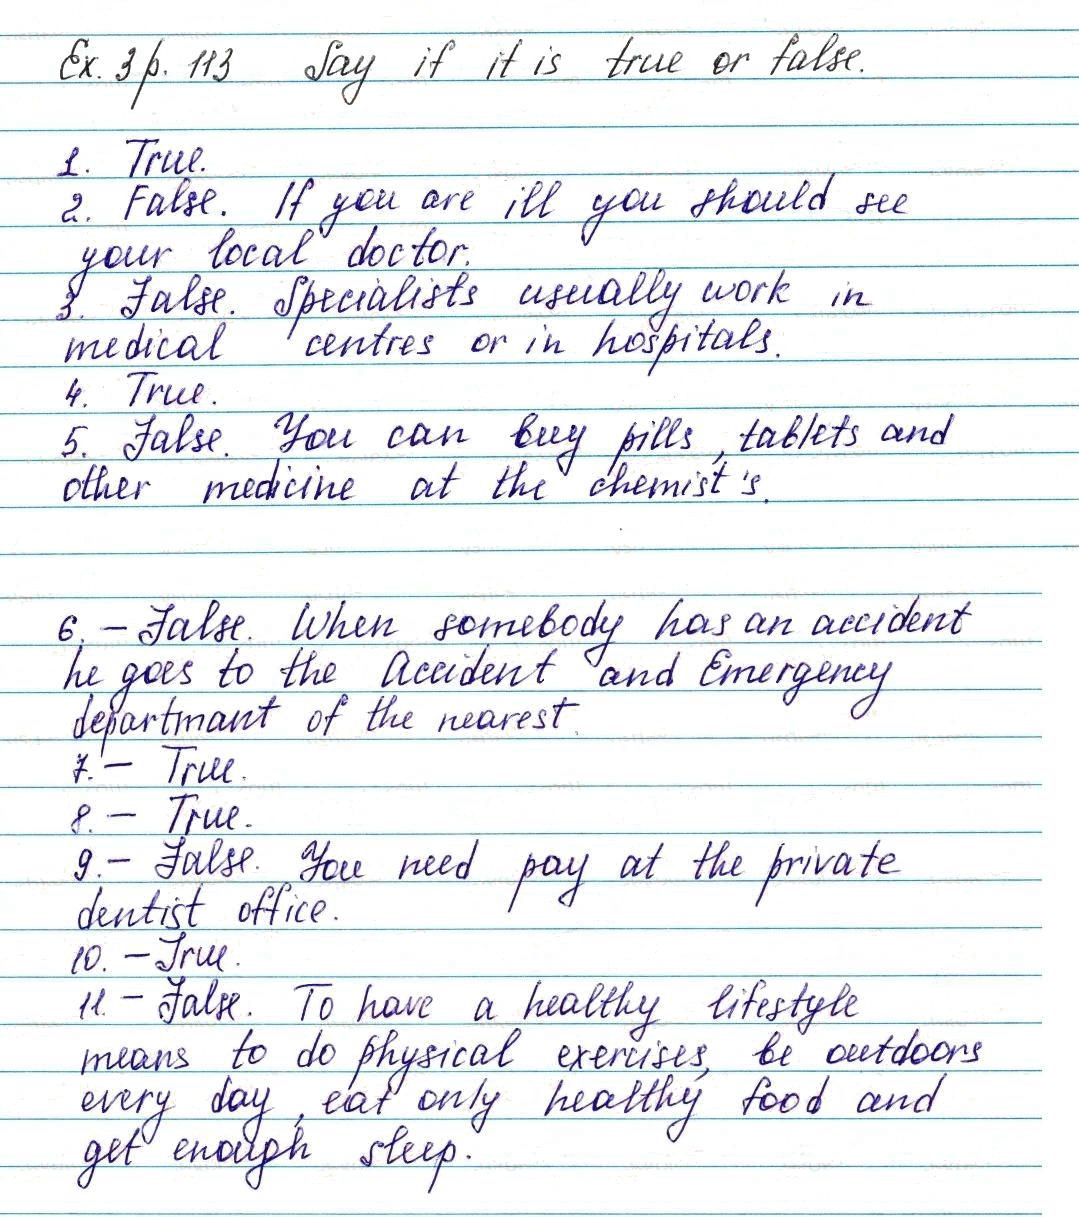 Ex. 3 p. 113 Say if it is true or false.
1. True.
2. False. If you are ill you should see
your local doctor.
3. False. Specialists usually work in
medical centres or in hospitals.
4. True.
5. False. You can buy pills, tablets and
other medicine at the chemist's.
6. – False. When somebody has an accident
he goes to the Accident and Emergency
departmant of the nearest.
7. – True.
8. – True.
9. – False. You need pay at the private
dentist office.
10. – True.
11 – False. To have a healthy lifestyle
means to do physical exercises, be outdoors
every day, eat only healthy food and
get enough sleep.